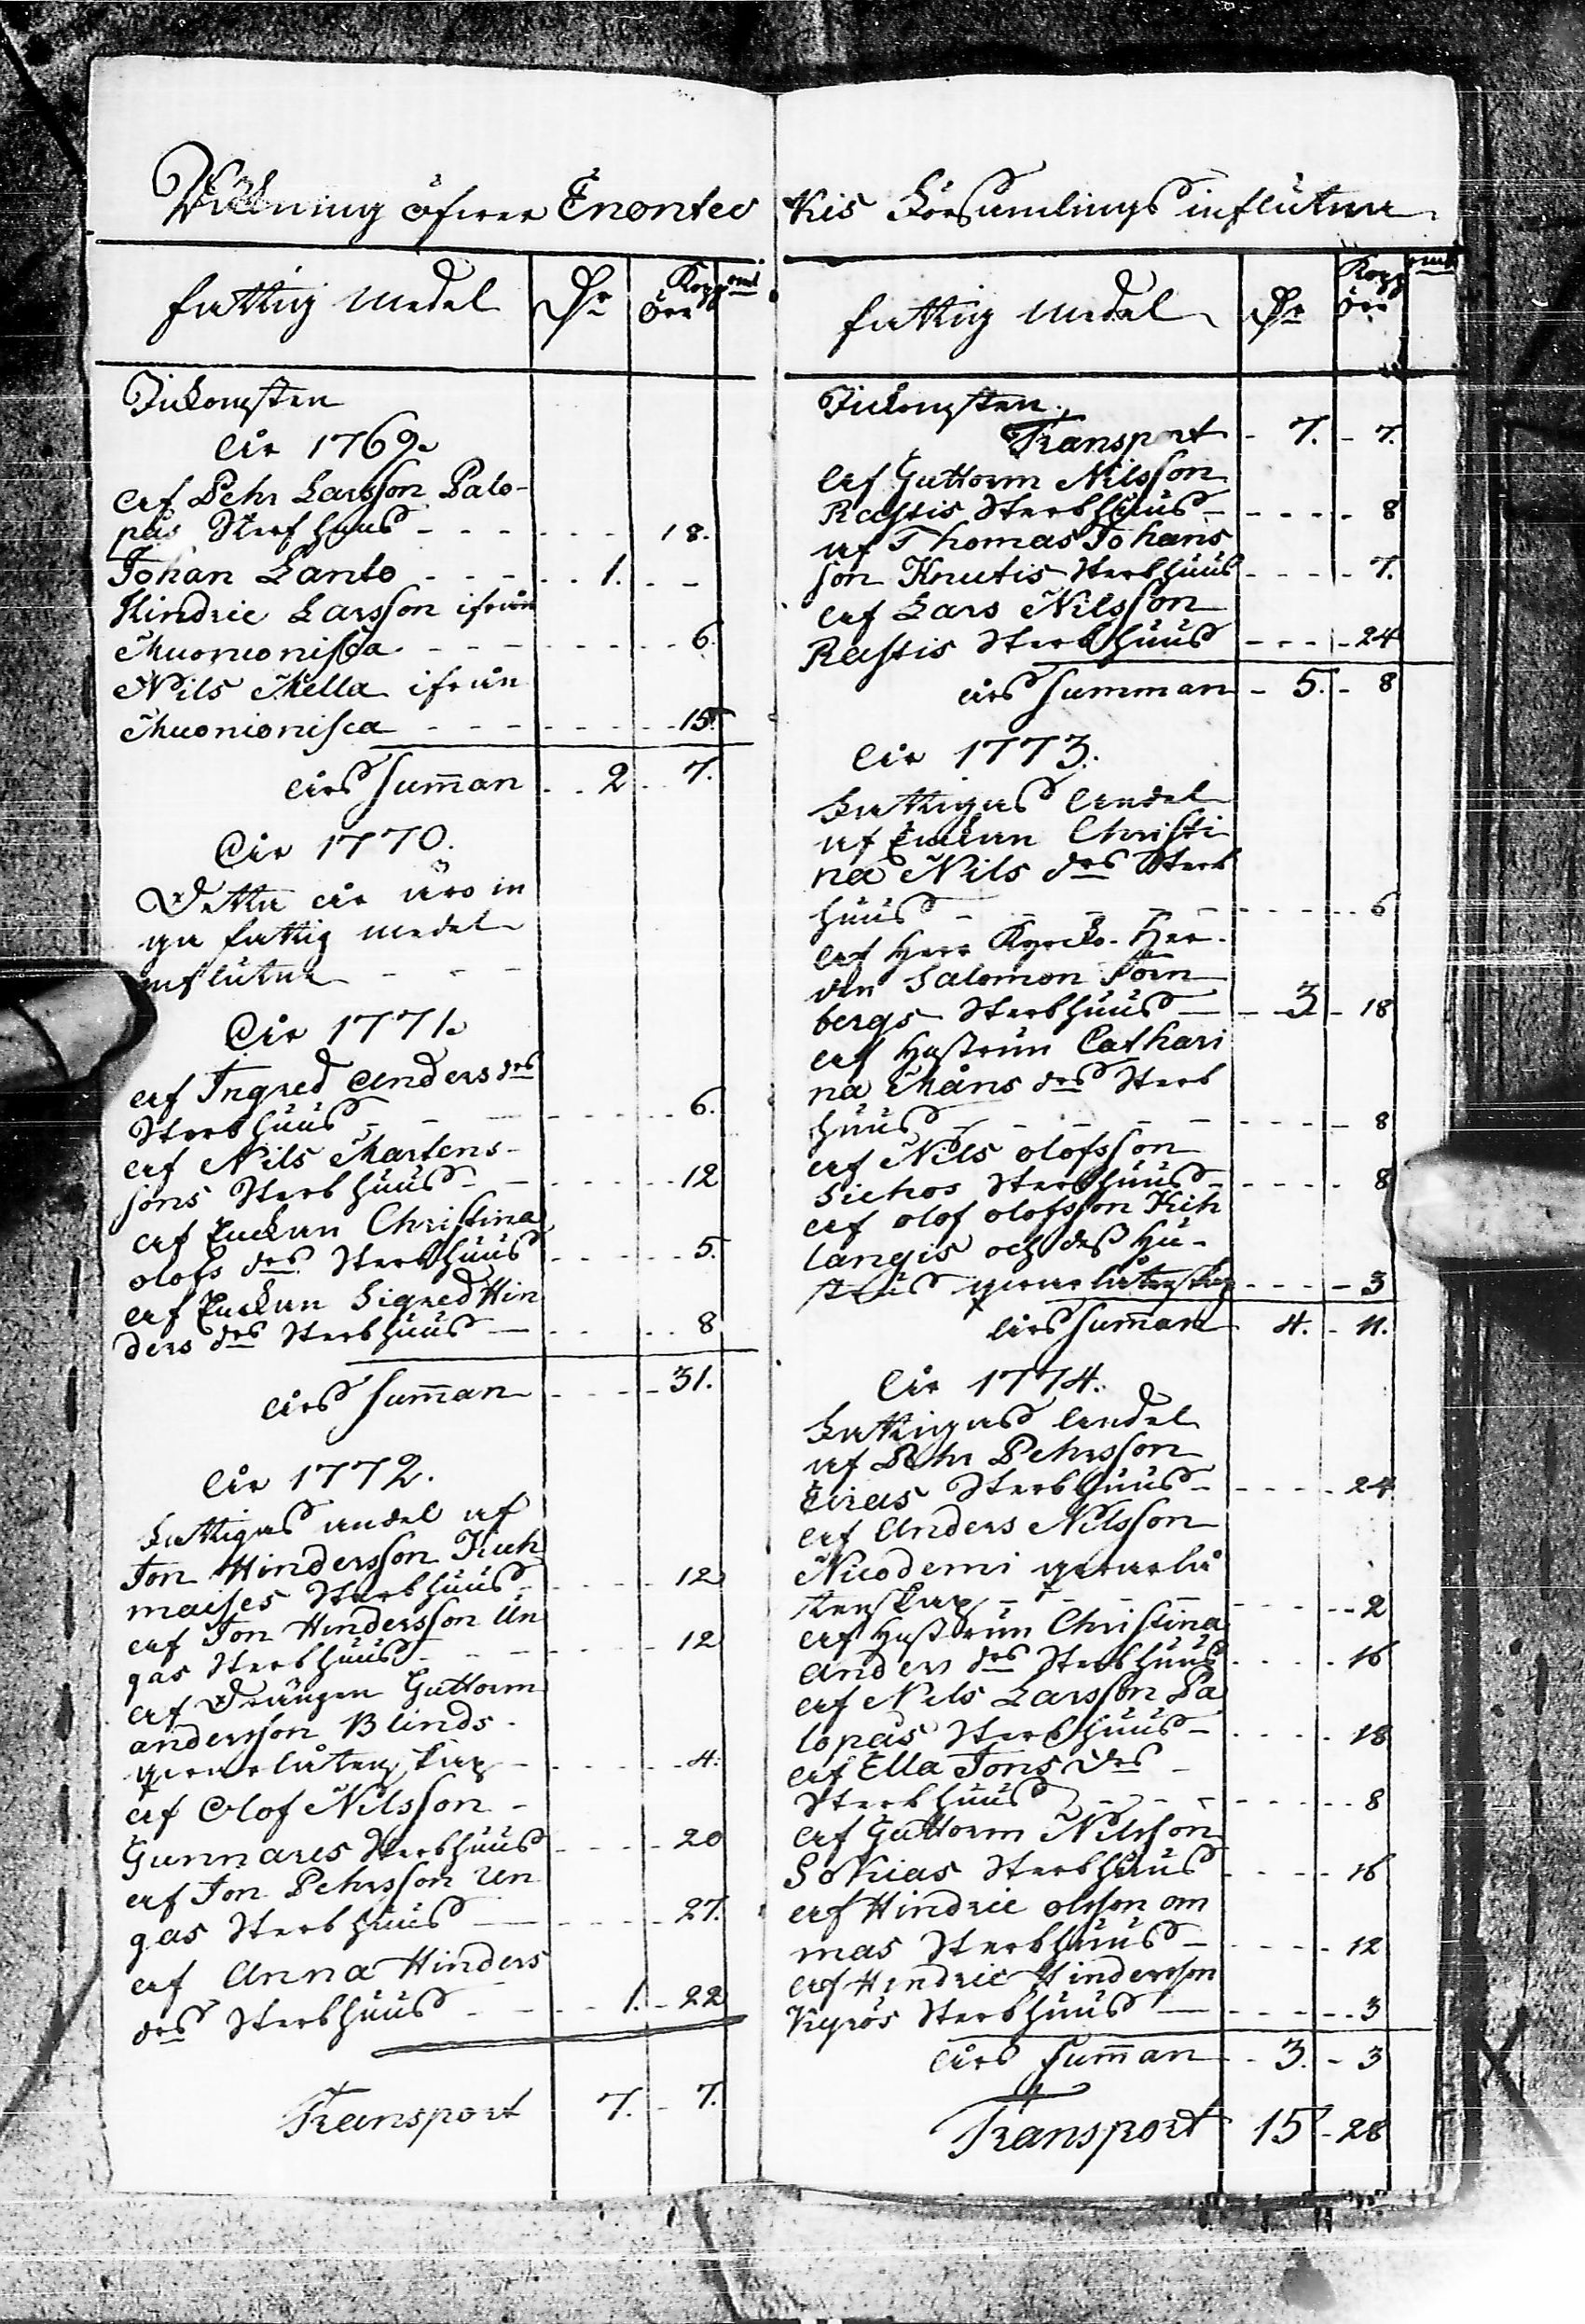 Räkning öfwer Enontec
fattig Medel Dr Kopp mt öre
Inkomsten
År 1769.
Af Pehr Larsson Palo-
päs Sterfhuus - - - - - - 18.
Johan Lanto - - - - - 1. - -
Hindric Larsson ifrån
Muonionisca - - - - - - - 6.
Nils Mella ifrån
Muonionisca - - - - - - - 15.
års Summan - - 2 - - 7.
År 1770.
Detta år äro in
ga fattig medel
influtne - - -
År 1771.
Af Ingred Anders drs
Sterbhuus - - - - - - - 6.
Af Nils Martens-
sons Sterbhuus - - - - - - 12
Af Enckan Christina
Olofs drs Sterbhuus - - - - - 5.
Af Enckan Sigred Hin
ders drs Sterbhuus - - - - - 8
års Summan - - - - 31.
År 1772.
Fattigas andel af
Jon Hindersson Kuh
maises Sterbhuus - - - - - 12
af Jon Hindersson Un
gas Sterbhuus - - - - - - 12
af Drängen Guttorm
andersson Blinds
qwarlåtenskap - - - - - 4.
af Olof Nilsson -
Gunnares Sterbhuus - - - - 20
af Jon Pehrsson Un
gas Sterbhuus - - - - - - 27.
af Anna Hinders
drs Sterbhuus - - - - 1. - 22
Transport 7. - 7.
kis Församlings influtne
fattig Medel Dr Kopp mt öre
Inkomsten.
Transport - 7. - 7.
Af Guttorm Nilsson
Rastis Sterbhuus - - - - - 8
af Thomas Johans
son Knutis Sterbhuus - - - - 7.
Af Lars Nilsson
Rastis Sterbhuus - - - - 24
års Summan - 5. - 8
År 1773.
Fattigas Andel
af Enckan Christi
na Nils drs Sterb
huus - - - - - - - - - 6
Af Herr Kyrcko-Her-
den Salomon Törn
bergs Sterbhuus - - 3 - 18
Af Hustrun Cathari
na Måns drs Sterb
huus - - - - - - - - - 8
Af Nils olofsson
Siekos Sterbhuus - - - - - 8
Af olof olofsson Kuh
langis och dess Hu-
strus qwarlåtenskap - - - - 3
års Summan 4. - 11.
År 1774.
Fattigas Andel
af Pehr Pehrsson
Eiras Sterbhuus - - - - - 24
af Anders Nilsson
Nicodemi qwarlå
tenskap - - - - - - - 2
Af Hustrun Christina
Anders drs Sterbhuus - - - - 16
Af Nils Larsson Pa
lopäs Sterbhuus - - - - - 18
Af Ella Jons drs
Sterbhuus - - - - - - - 8
Af Guttorm Nilsson
Sokias Sterbhuus - - - - 16
af Hindric olsson om
mas Sterbhuus - - - - - 12
af Hindric Hindersson
Kyrös Sterbhuus - - - - - 3
års Summan - 3. - 3
Transport 15 - 28